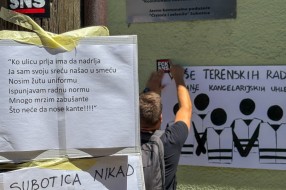 SNS
"Ko ulicu prlja ima da nadrlja
Ja sam svoju sreću našao u smeću
Nosim žutu uniformu
Ispunjavam radnu normu
Mnogo mrzim zabušante
Što neće da nose kante!!!!"
SUBOTICA NIKAD
SNS
ŠE TERENSKIH RAD
KANCELARIJSKIH UHLE